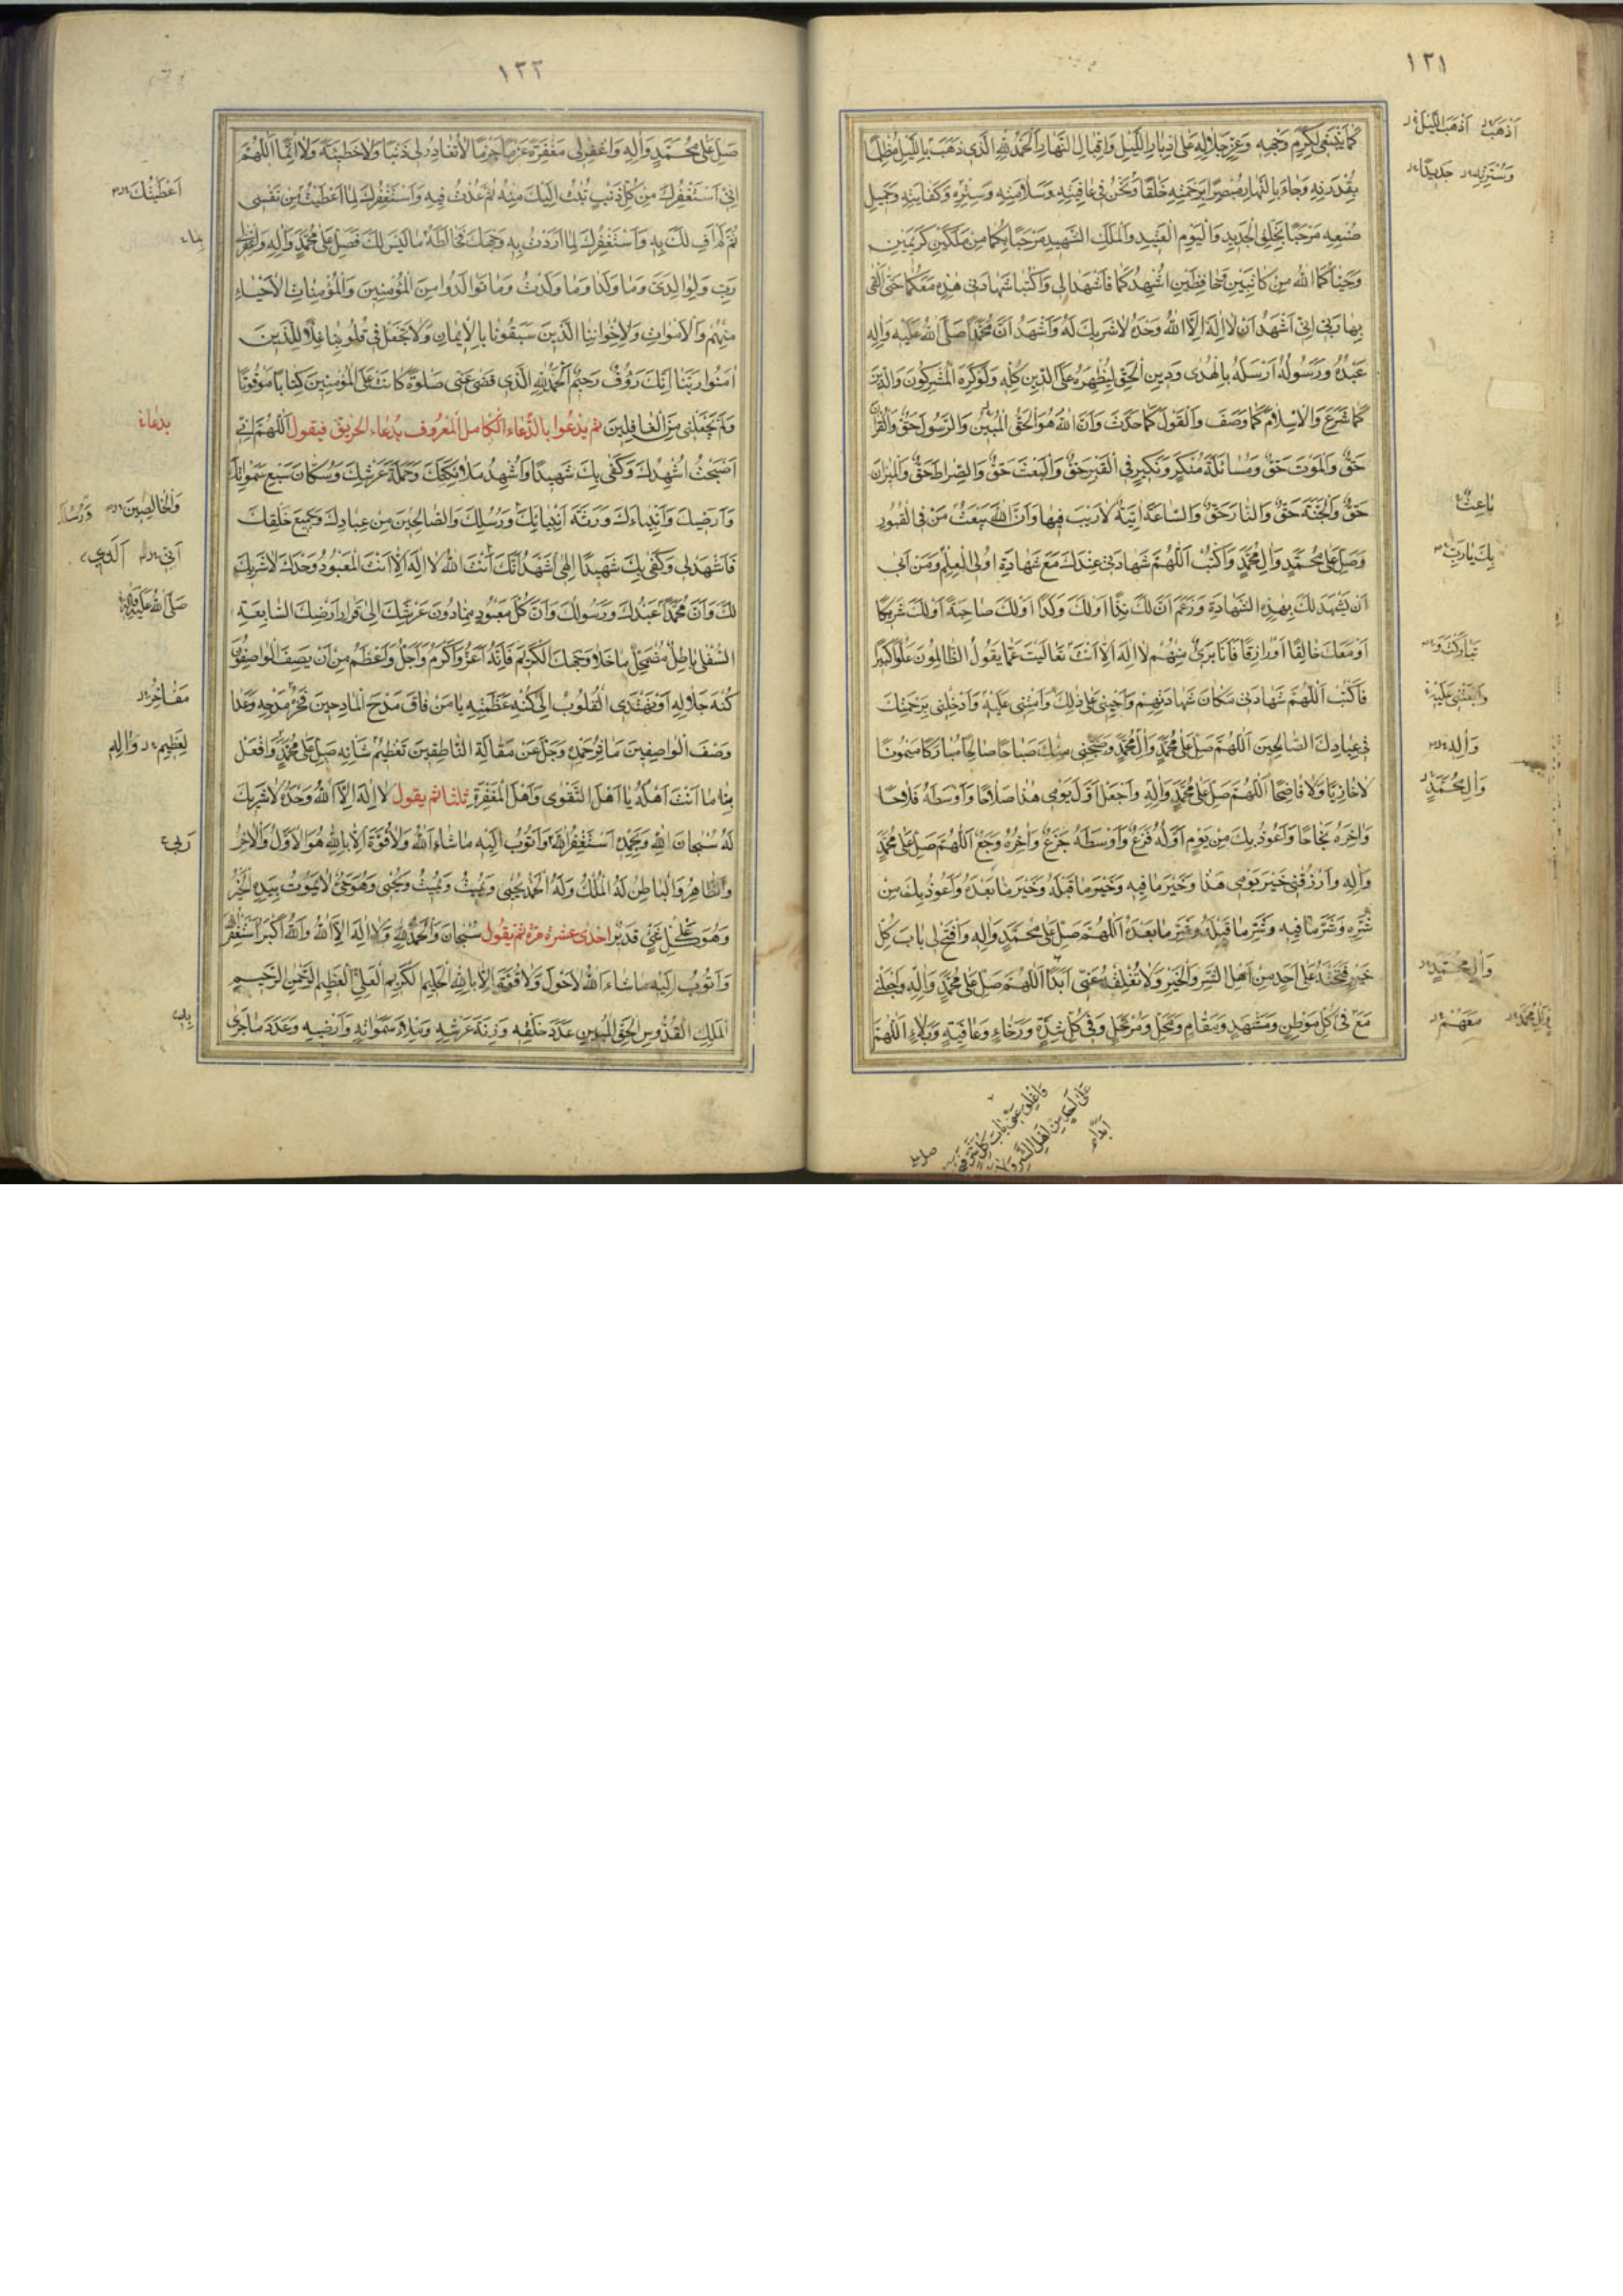 ١٣١
كَما يَنْبَغي لِكَرَمِ وَجْهِهِ وَعِزِّ جَلالِهِ عَلى اِدْبارِ اللَّيْلِ وَاِقْبالِ النَّهارِ اَلْحَمْدُ لِلّهِ الَّذي ذَهَبَ بِاللَّيْلِ مُظْلِمًا
بِقُدْرَتِهِ وَجاءَ بِالنَّهارِ مُبْصِرًا بِرَحْمَتِهِ خَلْقًا وَنَحْنُ في عافِيَتِهِ وَسَلامَتِهِ وَسِتْرِهِ وَكِفايَتِهِ وَجَميلِ
صُنْعِهِ مَرْحَبًا بِخَلْقِ الْجَديدِ وَالْيَوْمِ الْعَتيدِ وَالْمَلَكِ الشَّهيدِ مَرْحَبًا بِكُما مِنْ مَلَكَيْنِ كَريمَيْنِ
وَحَيّاكُمَا اللهُ مِنْ كاتِبَيْنِ حافِظَيْنِ اُشْهِدُكُما فَاشْهَدا لي وَاكْتُبا شَهادَتي هذِهِ مَعَكُما حَتّى اَلْقى
بِها رَبّي اِنّي اَشْهَدُ اَنْ لا اِلهَ اِلاَّ اللهُ وَحْدَهُ لا شَريكَ لَهُ وَاَشْهَدُ اَنَّ مُحَمَّدًا صَلَّى اللهُ عَلَيْهِ وَآلِهِ
عَبْدُهُ وَرَسُولُهُ اَرْسَلَهُ بِالْهُدى وَدينِ الْحَقِّ لِيُظْهِرَهُ عَلَى الدّينِ كُلِّهِ وَلَوْ كَرِهَ الْمُشْرِكُونَ وَاَنَّ الدّينَ
كَما شَرَعَ وَالْاِسْلامَ كَما وَصَفَ وَالْقَوْلَ كَما حَدَّثَ وَاَنَّ اللهَ هُوَ الْحَقُّ الْمُبينُ وَالرَّسُولَ حَقٌّ وَالْقُرْآنَ
حَقٌّ وَالْمَوْتَ حَقٌّ وَمُسائَلَةَ مُنْكَرٍ وَنَكيرٍ فِي الْقَبْرِ حَقٌّ وَالْبَعْثَ حَقٌّ وَالصِّراطَ حَقٌّ وَالْميزانَ
حَقٌّ وَالْجَنَّةَ حَقٌّ وَالنّارَ حَقٌّ وَالسّاعَةَ آتِيَةٌ لا رَيْبَ فيها وَاَنَّ اللهَ يَبْعَثُ مَنْ فِي الْقُبُورِ
وَصَلِّ عَلى مُحَمَّدٍ وَآلِ مُحَمَّدٍ وَاكْتُبِ اللّهُمَّ شَهادَتي عِنْدَكَ مَعَ شَهادَةِ اُولِى الْعِلْمِ وَمَنْ اَبى
اَنْ يَشْهَدَ لَكَ بِهذِهِ الشَّهادَةِ وَزَعَمَ اَنَّ لَكَ نِدًّا اَوْ لَكَ وَلَدًا اَوْ لَكَ صاحِبَةً اَوْ لَكَ شَريكًا
اَوْ مَعَكَ خالِقًا اَوْ رازِقًا فَاَنَا بَرىءٌ مِنْهُمْ لا اِلهَ اِلاّ اَنْتَ تَعالَيْتَ عَمّا يَقُولُ الظّالِمُونَ عُلُوًّا كَبيرًا
فَاكْتُبِ اللّهُمَّ شَهادَتي مَكانَ شَهادَتِهِمْ وَاَحْيِني عَلى ذلِكَ وَاَمِتْني عَلَيْهِ وَاَدْخِلْني بِرَحْمَتِكَ
في عِبادِكَ الصّالِحينَ اَللّهُمَّ صَلِّ عَلى مُحَمَّدٍ وَآلِ مُحَمَّدٍ وَصَبِّحْني مِنْكَ صَباحًا صالِحًا مُبارَكًا مَيْمُونًا
لا خازِيًا وَلا فاضِحًا اَللّهُمَّ صَلِّ عَلى مُحَمَّدٍ وَآلِهِ وَاجْعَلْ اَوَّلَ يَوْمي هذا صَلاحًا وَاَوْسَطَهُ فَلاحًا
وَآخِرَهُ نَجاحًا وَاَعُوذُ بِكَ مِنْ يَوْمٍ اَوَّلُهُ فَزَعٌ وَاَوْسَطُهُ جَزَعٌ وَآخِرُهُ وَجَعٌ اَللّهُمَّ صَلِّ عَلى مُحَمَّدٍ
وَآلِهِ وَارْزُقْني خَيْرَ يَوْمي هذا وَخَيْرَ ما فيهِ وَخَيْرَ ما قَبْلَهُ وَخَيْرَ ما بَعْدَهُ وَاَعُوذُ بِكَ مِنْ
شَرِّهِ وَشَرِّ ما فيهِ وَشَرِّ ما قَبْلَهُ وَشَرِّ ما بَعْدَهُ اَللّهُمَّ صَلِّ عَلى مُحَمَّدٍ وَآلِهِ وَافْتَحْ لي بابَ كُلِّ
خَيْرٍ فَتَحْتَهُ عَلى اَحَدٍ مِنْ اَهْلِ الشَّرِّ وَالْخَيْرِ وَلا تُغْلِقْهُ عَنّي اَبَدًا اَللّهُمَّ صَلِّ عَلى مُحَمَّدٍ وَآلِهِ وَاجْعَلْني
مَعَ في كُلِّ مَوْطِنٍ وَمَشْهَدٍ وَمَقامٍ وَمَحَلٍّ وَمُرْتَحَلٍ وَفي كُلِّ شِدَّةٍ وَرَخاءٍ وَعافِيَةٍ وَبَلاءٍ اَللّهُمَّ
اَذْهَبَ اَذْهَبَ اللَّيْلَ
جَديدًا
باعِثٌ
بِكَ يا رَبِّ
تَبارَكْتَ وَ
وَابْعَثْني عَلَيْهِ
وَآلِهِ
وَآلِ مُحَمَّدٍ
وَآلِ مُحَمَّدٍ
مَعَهُمْ
وَاَغْلِقْ عَنّي بابَ كُلِّ شَرٍّ
عَلى اَحَدٍ مِنْ اَهْلِ الشَّرِّ
اَبَدًا
١٣٢
صَلِّ عَلى مُحَمَّدٍ وَآلِهِ وَاغْفِرْ لي مَغْفِرَةً عَزْمًا جَزْمًا لا تُغادِرُ لي ذَنْبًا وَلا خَطيئَةً وَلا اِثْمًا اَللّهُمَّ
اِنّي اَسْتَغْفِرُكَ مِنْ كُلِّ ذَنْبٍ تُبْتُ اِلَيْكَ مِنْهُ ثُمَّ عُدْتُ فيهِ وَاَسْتَغْفِرُكَ لِما اَعْطَيْتُ مِنْ نَفْسي
ثُمَّ لَمْ اَفِ لَكَ بِهِ وَاَسْتَغْفِرُكَ لِما اَرَدْتُ بِهِ وَجْهَكَ فَخالَطَهُ ما لَيْسَ لَكَ فَصَلِّ عَلى مُحَمَّدٍ وَآلِهِ وَاغْفِرْ لي
رَبِّ وَلِوالِدَيَّ وَما وَلَدا وَما وَلَدْتُ وَما تَوالَدُوا مِنَ الْمُؤْمِنينَ وَالْمُؤْمِناتِ الْاَحْياءِ
مِنْهُمْ وَالْاَمْواتِ وَلِاِخْوانِنَا الَّذينَ سَبَقُونا بِالْايمانِ وَلا تَجْعَلْ في قُلُوبِنا غِلًّا لِلَّذينَ
آمَنُوا رَبَّنا اِنَّكَ رَؤُفٌ رَحيمٌ اَلْحَمْدُ لِلّهِ الَّذي قَضى عَنّي صَلوةً كانَتْ عَلَى الْمُؤْمِنينَ كِتابًا مَوْقُوتًا
وَلَمْ يَجْعَلْني مِنَ الْغافِلينَ ثم يدعوا بالدّعاء الكامل المعروف بدعاء الحريق فيقول اَللّهُمَّ اِنّي
اَصْبَحْتُ اُشْهِدُكَ وَكَفى بِكَ شَهيدًا وَاُشْهِدُ مَلائِكَتَكَ وَحَمَلَةَ عَرْشِكَ وَسُكّانَ سَبْعِ سَمواتِكَ
وَاَرَضيكَ وَاَنْبِياءَكَ وَوَرَثَةَ اَنْبِيائِكَ وَرُسُلِكَ وَالصّالِحينَ مِنْ عِبادِكَ وَجَميعَ خَلْقِكَ
فَاشْهَدْ لي وَكَفى بِكَ شَهيدًا اِلهي اَشْهَدُ اَنَّكَ اَنْتَ اللهُ لا اِلهَ اِلاّ اَنْتَ الْمَعْبُودُ وَحْدَكَ لا شَريكَ
لَكَ وَاَنَّ مُحَمَّدًا عَبْدُكَ وَرَسُولُكَ وَاَنَّ كُلَّ مَعْبُودٍ مِمّا دُونَ عَرْشِكَ اِلى قَرارِ اَرْضِكَ السّابِعَةِ
السُّفْلى باطِلٌ مُضْمَحِلٌّ ما خَلا وَجْهَكَ الْكَريمَ فَاِنَّهُ اَعَزُّ وَاَكْرَمُ وَاَجَلُّ وَاَعْظَمُ مِنْ اَنْ يَصِفَ الْواصِفُونَ
كُنْهَ جَلالِهِ اَوْ تَهْتَدِيَ الْقُلُوبُ اِلى كُنْهِ عَظَمَتِهِ يا مَنْ فاقَ مَدْحَ الْمادِحينَ فَخْرُ مَدْحِهِ وَعَدا
وَصْفَ الْواصِفينَ مَاثِرُ حَمْدِهِ وَجَلَّ عَنْ مَقالَةِ النّاطِقينَ تَعْظيمُ شَانِهِ صَلِّ عَلى مُحَمَّدٍ وَافْعَلْ
بِنا ما اَنْتَ اَهْلُهُ يا اَهْلَ التَّقْوى وَاَهْلَ الْمَغْفِرَةِ ثلثا ثم يقول لا اِلهَ اِلاَّ اللهُ وَحْدَهُ لا شَريكَ
لَهُ سُبْحانَ اللهِ وَبِحَمْدِهِ اَسْتَغْفِرُ اللهَ وَاَتُوبُ اِلَيْهِ ما شاءَ اللهُ وَلا قُوَّةَ اِلاّ بِاللهِ هُوَ الْاَوَّلُ وَالْآخِرُ
وَالظّاهِرُ وَالْباطِنُ لَهُ الْمُلْكُ وَلَهُ الْحَمْدُ يُحْيي وَيُميتُ وَيُميتُ وَيُحْيي وَهُوَ حَيٌّ لا يَمُوتُ بِيَدِهِ الْخَيْرُ
وَهُوَ عَلى كُلِّ شَيْءٍ قَديرٌ احدى عشرة مرّة ثم يقول سُبْحانَ وَالْحَمْدُ لِلّهِ وَلا اِلهَ اِلاَّ اللهُ وَاللهُ اَكْبَرُ اَسْتَغْفِرُ اللهَ
وَاَتُوبُ اِلَيْهِ ما شاءَ اللهُ لا حَوْلَ وَلا قُوَّةَ اِلاّ بِاللهِ الْحَليمِ الْكَريمِ الْعَلِيِّ الْعَظيمِ الرَّحْمنِ الرَّحيمِ
الْمَلِكِ الْقُدُّوسِ الْحَقِّ الْمُبينِ عَدَدَ خَلْقِهِ وَزِنَةَ عَرْشِهِ وَمِلْاَ سَمواتِهِ وَاَرْضِهِ وَعَدَدَ ما جَرى
اَعْطَيْتُكَ
بدعاء
وَالْخالِصينَ
صَلَّى اللهُ عَلَيْهِ وَآلِهِ
مَفاخِرُ
لِعَظيمِ وَآلِهِ
رَبّي